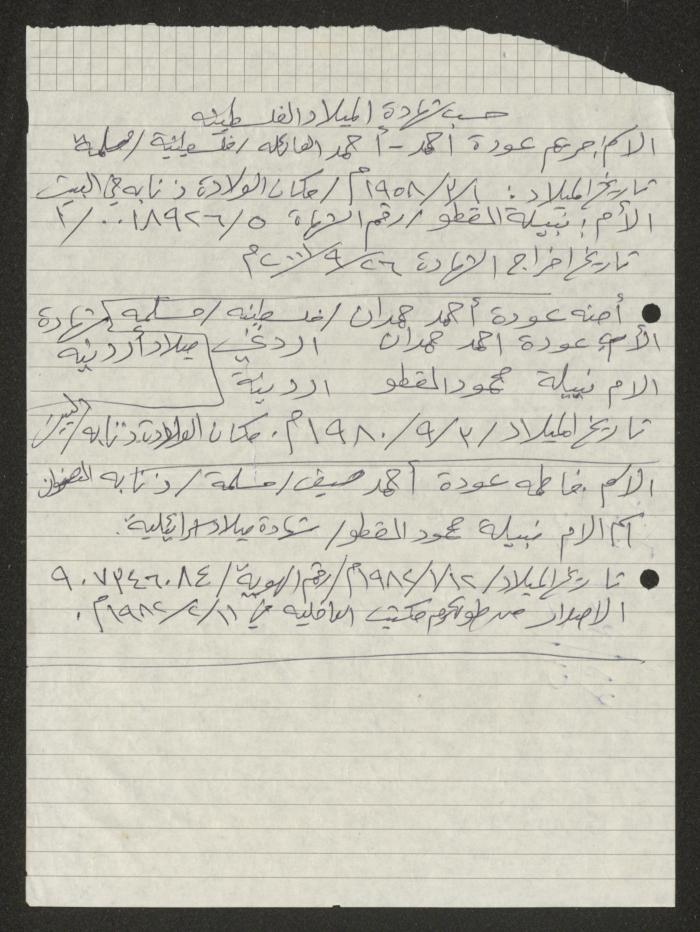 حسب شهادة الميلاد الفلسطينيه
الاسم: مريم عودة أحمد - أحمد العائله / فلسطينية / مسلمة
تاريخ الميلاد: ١ / ٣ / ١٩٥٨م / مكان الولادة ذنابه في البيت
الأم: نبيلة القطو / رقم الشهادة
تاريخ اخراج الشهادة ٢٦ / ٩ / م
أمنه عودة أحمد حمدان / فلسطينيه / مسلمه / شهادة ميلاد أردنية
الأب عودة احمد حمدان اردني
الام نبيلة محمود القطو اردنية
تاريخ الميلاد / ٣ / ٩ / ١٩٨٠م. مكان الولادة ذنابه / البيت
الاسم. فاطمه عودة أحمد ضيف / مسلمة / ذنابه العنوان
اسم الام نبيلة محمود القطو / شهادة ميلاد اسرائيلية.
تاريخ الميلاد / ١٢ / ١ / ١٩٨٢م / رقم الهوية / ٩٠٧٣٤٦٠٨٤
الاصدار من طولكرم مكتب الداخلية في ١١ / ٢ / ١٩٨٢م.